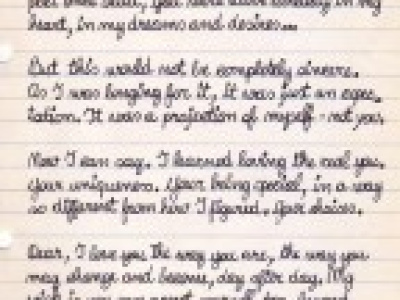 you were alive already in my
heart, in my dreams and desires...
But this would not be completely sincere.
As I was longing for it, it was just an expec-
tation. It was a projection of myself - not you.
Now I can say, I learned loving the real you.
Your uniqueness. Your being special, in a way
so different from how I figured. Your choices.
Dear, I love you the way you are, the way you
may change and become, day after day. My